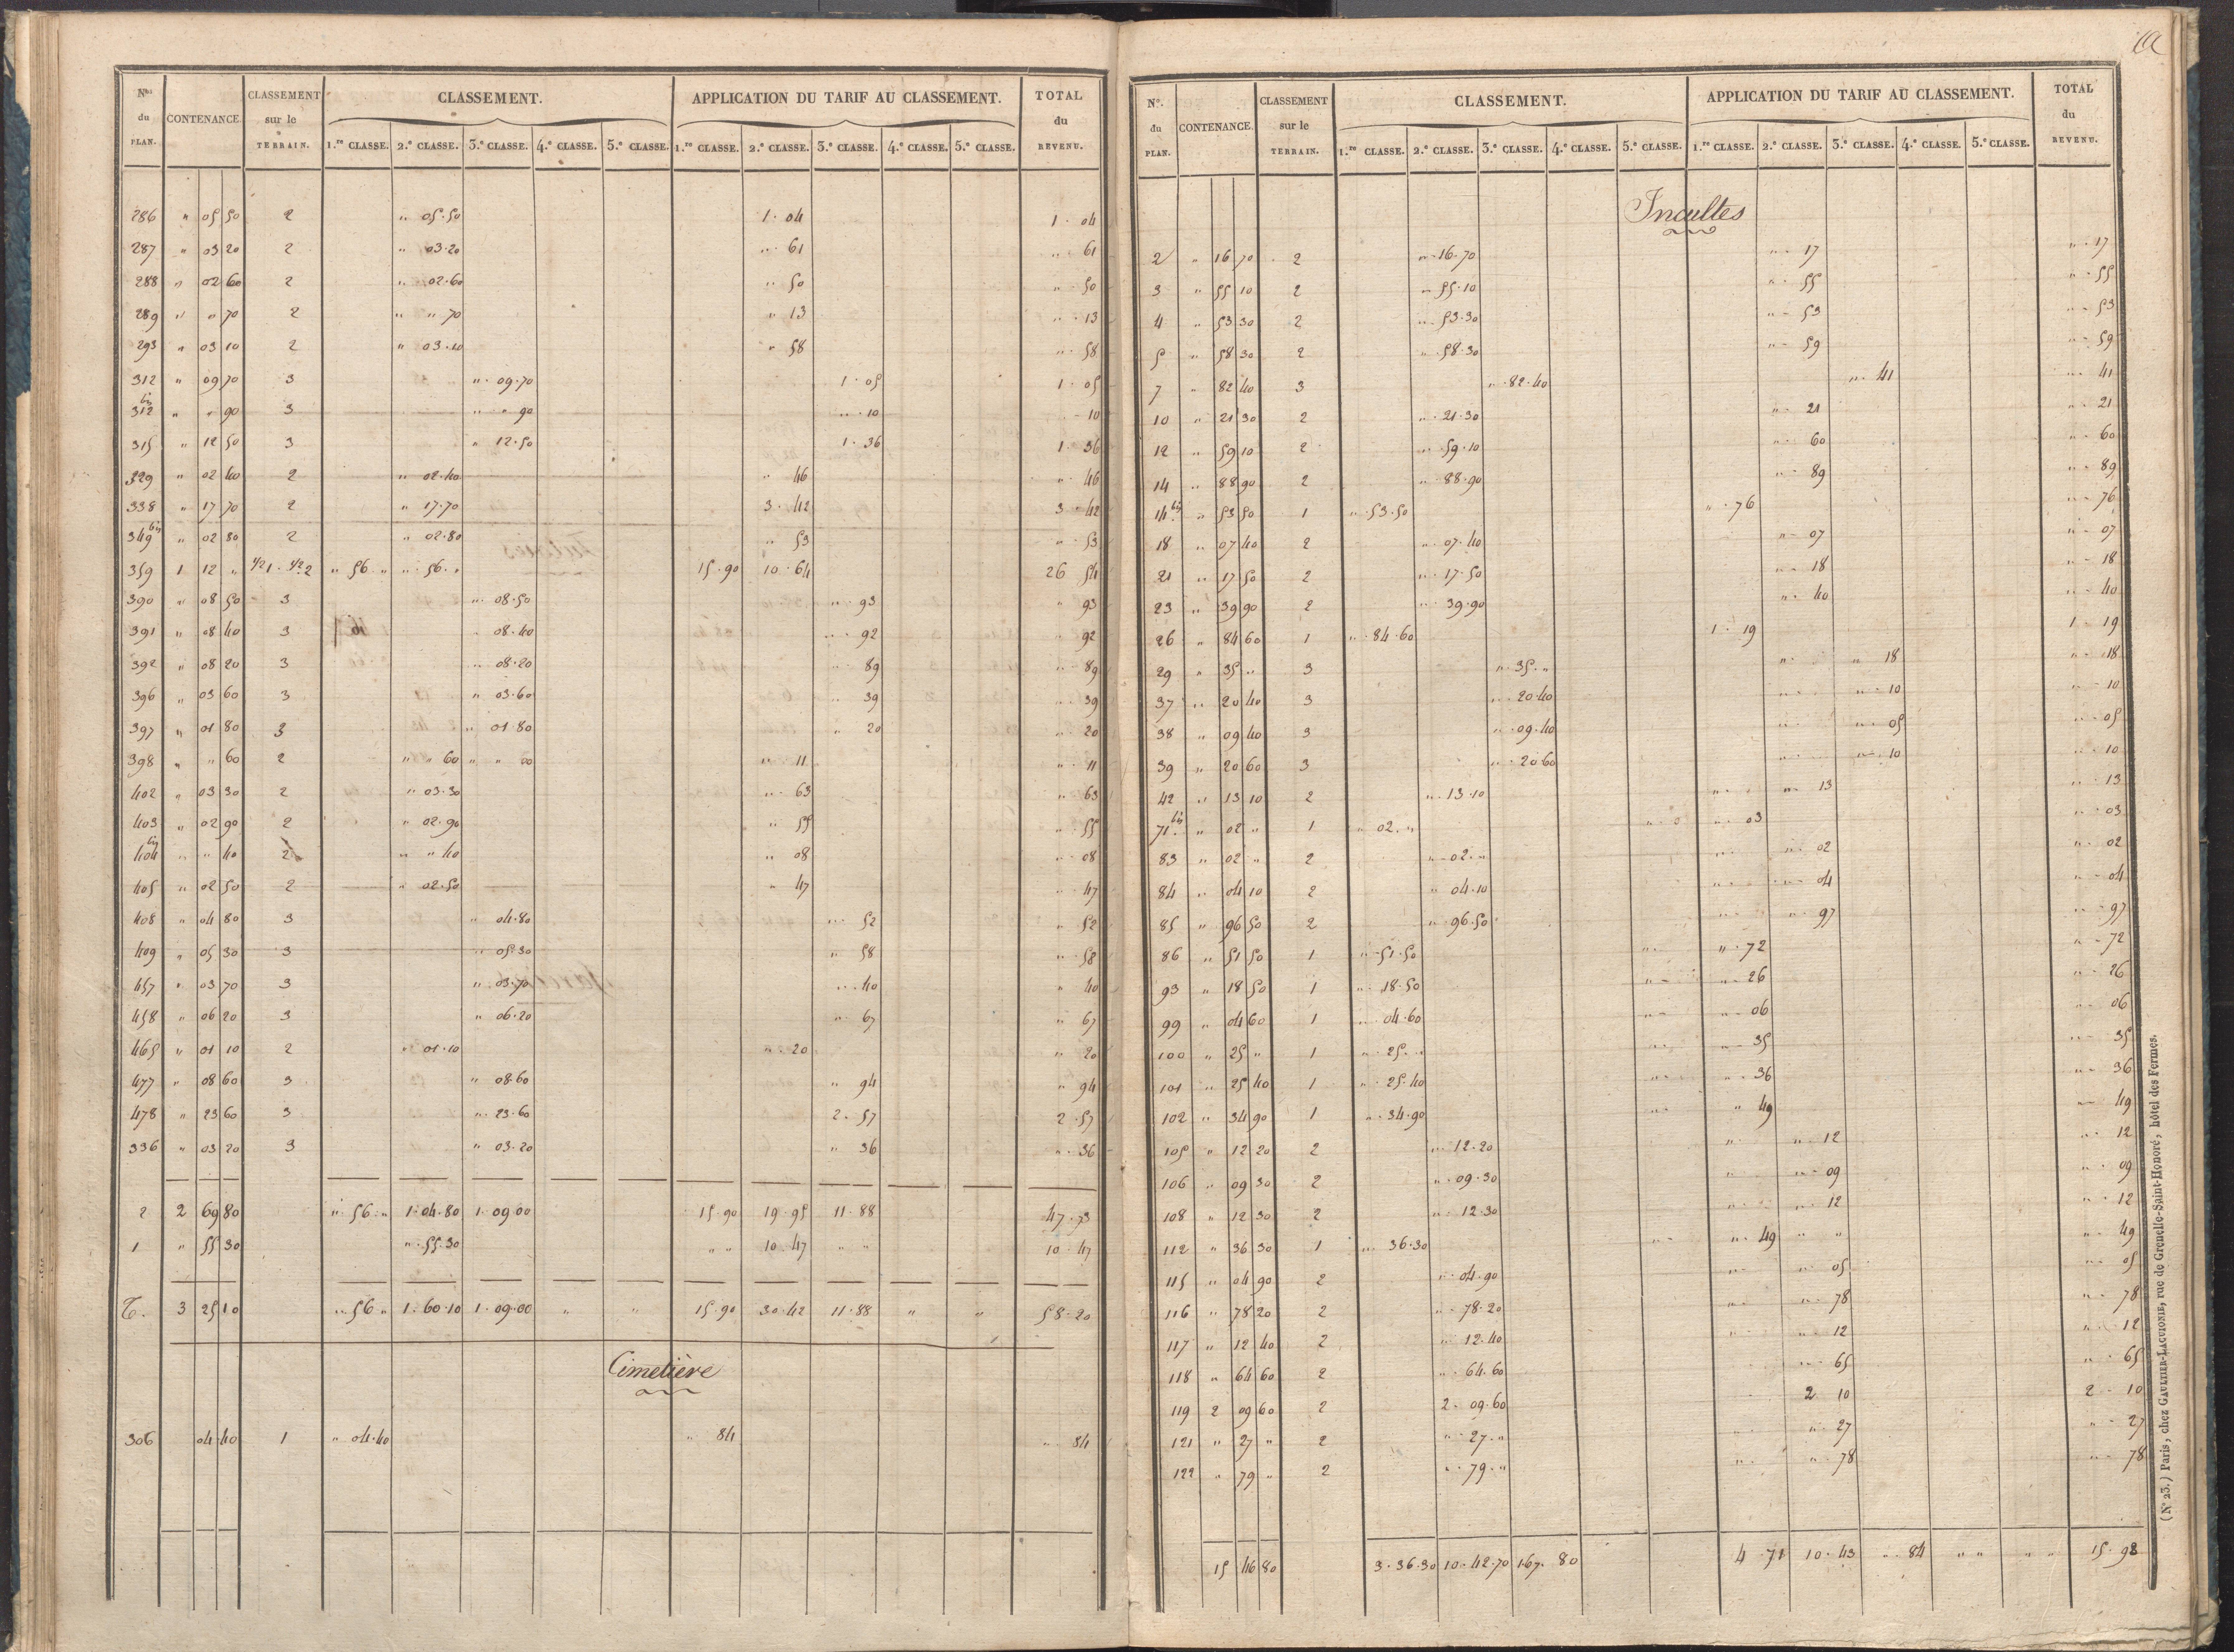 Nos du PLAN. CONTENANCE. CLASSEMENT sur le TERRAIN. CLASSEMENT. APPLICATION DU TARIF AU CLASSEMENT. TOTAL du REVENU.
1.re CLASSE. 2.e CLASSE. 3.e CLASSE. 4.e CLASSE. 5.e CLASSE. 1.re CLASSE. 2.e CLASSE. 3.e CLASSE. 4.e CLASSE. 5.e CLASSE.
286 " 05 50 2 " 05.50 1.04 1.04
287 " 03 20 2 " 03.20 " 61 " 61
288 " 02 60 2 " 02.60 " 50 " 50
289 " " 70 2 " " 70 " 13 " 13
293 " 03 10 2 " 03.10 " 58 " 58
312 " 09 70 3 " 09.70 1.05 1.05
312 bis " " 90 3 " " 90 " 10 " 10
315 " 12 50 3 " 12.50 1.36 1.36
329 " 02 40 2 " 02.40 " 46 " 46
338 " 17 70 2 " 17.70 3.42 3.42
349 bis " 02 80 2 " 02.80 " 53 " 53
359 1 12 " 1/2 1. 1/2 2 " 56 " " 56 " 15.90 10.64 26 54
390 " 08 50 3 " 08.50 " 93 " 93
391 " 08 40 3 " 08.40 " 92 " 92
392 " 08 20 3 " 08.20 " 89 " 89
396 " 03 60 3 " 03.60 " 39 " 39
397 " 01 80 3 " 01.80 " 20 " 20
398 " " 60 2 " " 60 " " 00 " 11 " 11
402 " 03 30 2 " 03.30 " 63 " 63
403 " 02 90 2 " 02.90 " 55 " 55
404 bis " " 40 2 " " 40 " 08 " 08
405 " 02 50 2 " 02.50 " 47 " 47
408 " 04 80 3 " 04.80 " 52 " 52
409 " 05 30 3 " 05.30 " 58 " 58
457 " 03 70 3 " 03.70 " 40 " 40
458 " 06 20 3 " 06.20 " 67 " 67
465 " 01 10 2 " 01.10 " 20 " 20
477 " 08 60 3 " 08.60 " 94 " 94
478 " 23 60 3 " 23.60 2.57 2.57
336 " 03 20 3 " 03.20 " 36 " 36
2 2 69 80 " 56 " 1.04.80 1.09.00 15.90 19.95 11.88 47.73
1 " 55 30 " 55.30 " " 10.47 " " 10.47
T. 3 25 10 " 56 " 1.60.10 1.09.00 " " 15.90 30.42 11.88 " " 58.20
Cimetière
306 04 40 1 " 04.40 " 84 " 84
No. du PLAN. CONTENANCE. CLASSEMENT sur le TERRAIN. CLASSEMENT. APPLICATION DU TARIF AU CLASSEMENT. TOTAL du REVENU.
1.re CLASSE. 2.e CLASSE. 3.e CLASSE. 4.e CLASSE. 5.e CLASSE. 1.re CLASSE. 2.e CLASSE. 3.e CLASSE. 4.e CLASSE. 5.e CLASSE.
Incultes
2 " 16 70 2 " 16.70 " 17 " 17
3 " 55 10 2 " 55.10 " 55 " 55
4 " 53 30 2 " 53.30 " 53 " 53
5 " 58 30 2 " 58.30 " 59 " 59
7 " 82 40 3 " 82.40 " 41 " 41
10 " 21 30 2 " 21.30 " 21 " 21
12 " 59 10 2 " 59.10 " 60 " 60
14 " 88 90 2 " 88.90 " 89 " 89
14 bis " 53 50 1 " 53.50 " 76 " 76
18 " 07 40 2 " 07.40 " 07 " 07
21 " 17 50 2 " 17.50 " 18 " 18
23 " 39 90 2 " 39.90 " 40 " 40
26 " 84 60 1 " 84.60 1.19 1.19
29 " 35 " 3 " 35 " " " 18 " 18
37 " 20 40 3 " 20.40 " " 10 " 10
38 " 09 40 3 " 09.40 " " 05 " 05
39 " 20 60 3 " 20.60 " " 10 " 10
42 " 13 10 2 " 13.10 " " 13 " 13
71 bis " 02 " 1 " 02 " " 03 " 03
83 " 02 " 2 " 02 " " " 02 " 02
84 " 04 10 2 " 04.10 " " 04 " 04
85 " 96 50 2 " 96.50 " " 97 " 97
86 " 51 50 1 " 51.50 " " 72 " 72
93 " 18 50 1 " 18.50 " " 26 " 26
99 " 04 60 1 " 04.60 " " 06 " 06
100 " 25 " 1 " 25 " " " 35 " 35
101 " 25 40 1 " 25.40 " " 36 " 36
102 " 34 90 1 " 34.90 " " 49 " 49
105 " 12 20 2 " 12.20 " " 12 " 12
106 " 09 30 2 " 09.30 " " 09 " 09
108 " 12 30 2 " 12.30 " " 12 " 12
112 " 36 30 1 " 36.30 " " 49 " " " 49
115 " 04 90 2 " 04.90 " " 05 " 05
116 " 78 20 2 " 78.20 " " 78 " 78
117 " 12 40 2 " 12.40 " " 12 " 12
118 " 64 60 2 " 64.60 " 65 " 65
119 2 09 60 2 2.09.60 2 10 2.10
121 " 27 " 2 " 27 " " " 27 " 27
122 " 79 " 2 " 79 " " " 78 " 78
15 46 80 3.36.30 10.42.70 167.80 4.71 10.43 " 84 " " " " 15.98
(No 23.) Paris, chez GAULTIER-LAGUIONIE, rue de Grenelle-Saint-Honoré, hôtel des Fermes.